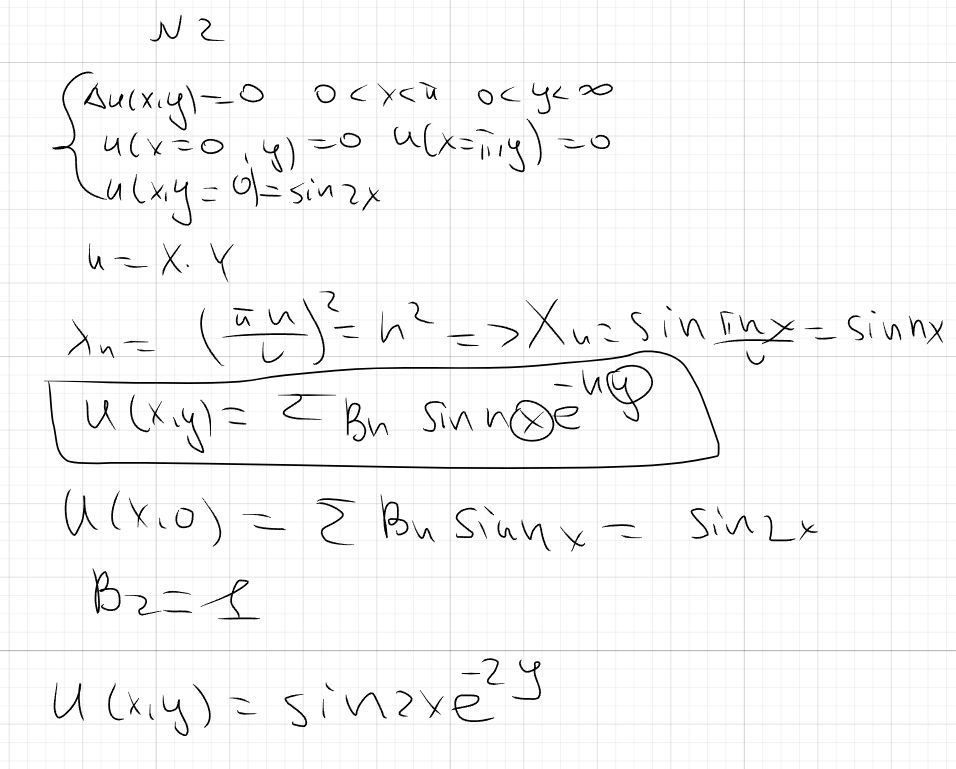 N 2
Δu(x,y)=0 0<x<π 0<y<∞
u(x=0,y)=0 u(x=π,y)=0
u(x,y=0)=sin2x
u=X·Y
λn=(πn/l)²=n² => Xn=sin πnx/l=sin nx
u(x,y)=Σ Bn sin nx e^-ny
U(x,0)=Σ Bn sin nx = sin2x
B2=1
U(x,y)=sin2x e^-2y